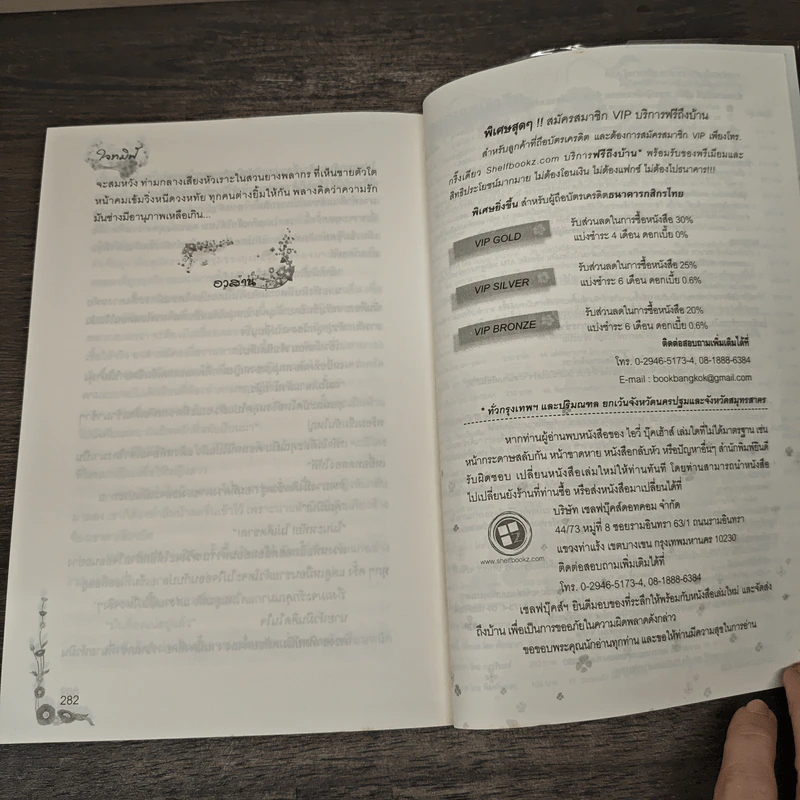 จะสมหวัง ท่ามกลางเสียงหัวเราะในสวนยางพลากร ที่เห็นชายตัวโต
หน้าคมเข้มวิ่งหนีดวงหทัย ทุกคนต่างยิ้มให้กัน พลางคิดว่าความรัก
มันช่างมีอานุภาพเหลือเกิน...
อวสาน
282
พิเศษสุดๆ !! สมัครสมาชิก VIP บริการฟรีถึงบ้าน
สำหรับลูกค้าที่ถือบัตรเครดิต และต้องการสมัครสมาชิก VIP เพียงโทร.
กริ๊งเดียว Shelfbookz.com บริการฟรีถึงบ้าน* พร้อมรับของพรีเมียมและ
สิทธิประโยชน์มากมาย ไม่ต้องโอนเงิน ไม่ต้องแฟกซ์ ไม่ต้องไปธนาคาร!!!
พิเศษยิ่งขึ้น สำหรับผู้ถือบัตรเครดิตธนาคารกสิกรไทย
VIP GOLD
รับส่วนลดในการซื้อหนังสือ 30%
แบ่งชำระ 4 เดือน ดอกเบี้ย 0%
VIP SILVER
รับส่วนลดในการซื้อหนังสือ 25%
แบ่งชำระ 6 เดือน ดอกเบี้ย 0.6%
VIP BRONZE
รับส่วนลดในการซื้อหนังสือ 20%
แบ่งชำระ 6 เดือน ดอกเบี้ย 0.6%
ติดต่อสอบถามเพิ่มเติมได้ที่
โทร. 0-2946-5173-4, 08-1888-6384
E-mail : bookbangkok@gmail.com
* ทั่วกรุงเทพฯ และปริมณฑล ยกเว้นจังหวัดนครปฐมและจังหวัดสมุทรสาคร
หากท่านผู้อ่านพบหนังสือของ ไอวี่ บุ๊คเฮ้าส์ เล่มใดที่ไม่ได้มาตรฐาน เช่น
หน้ากระดาษสลับกัน หน้าขาดหาย หนังสือกลับหัว หรือปัญหาอื่นๆ สำนักพิมพ์ยินดี
รับผิดชอบ เปลี่ยนหนังสือเล่มใหม่ให้ท่านทันที โดยท่านสามารถนำหนังสือ
ไปเปลี่ยนยังร้านที่ท่านซื้อ หรือส่งหนังสือมาเปลี่ยนได้ที่
บริษัท เชลฟ์บุ๊คส์ดอทคอม จำกัด
44/73 หมู่ที่ 8 ซอยรามอินทรา 63/1 ถนนรามอินทรา
แขวงท่าแร้ง เขตบางเขน กรุงเทพมหานคร 10230
www.shelfbookz.com
ติดต่อสอบถามเพิ่มเติมได้ที่
โทร. 0-2946-5173-4, 08-1888-6384
เชลฟ์บุ๊คส์ฯ ยินดีมอบของที่ระลึกให้พร้อมกับหนังสือเล่มใหม่ และจัดส่ง
ถึงบ้าน เพื่อเป็นการขออภัยในความผิดพลาดดังกล่าว
ขอขอบพระคุณนักอ่านทุกท่าน และขอให้ท่านมีความสุขในการอ่าน